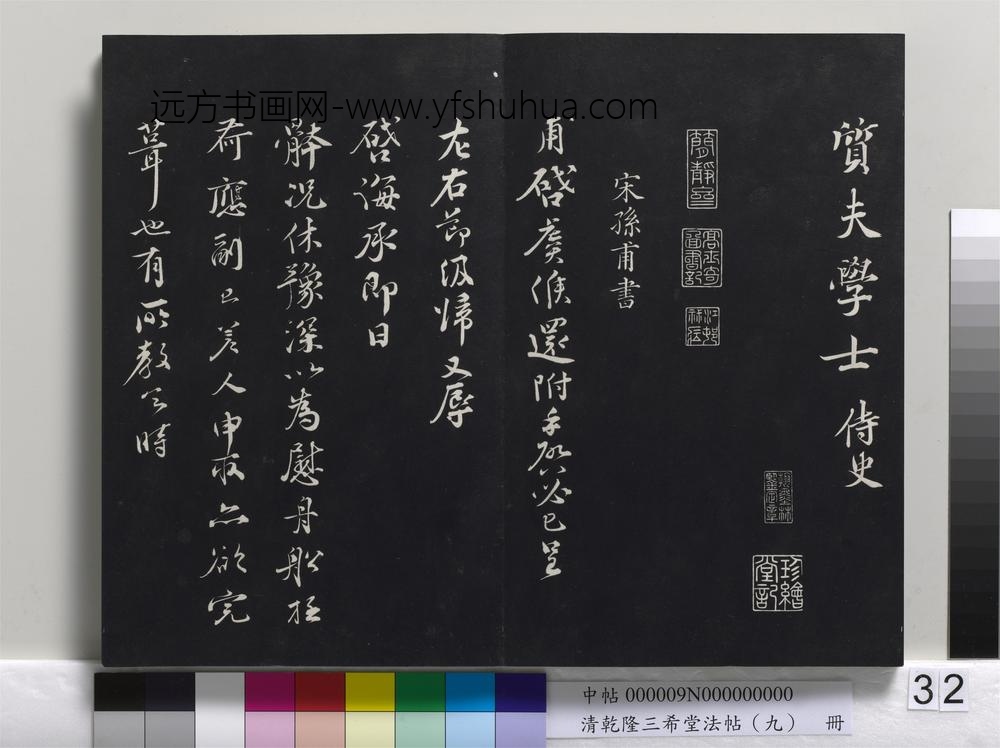 远方书画网-www.yfshuhua.com
質夫學士 侍史
宋孫甫書
甫啓虞候還附手啓必已呈
左右節級歸又辱
啓誨承即日
體況休豫深以為慰舟船極
荷應副已差人申取亦欲完
葺也有所教公時
珍繪堂記
中帖 000009N000000000
清乾隆三希堂法帖（九） 冊
32